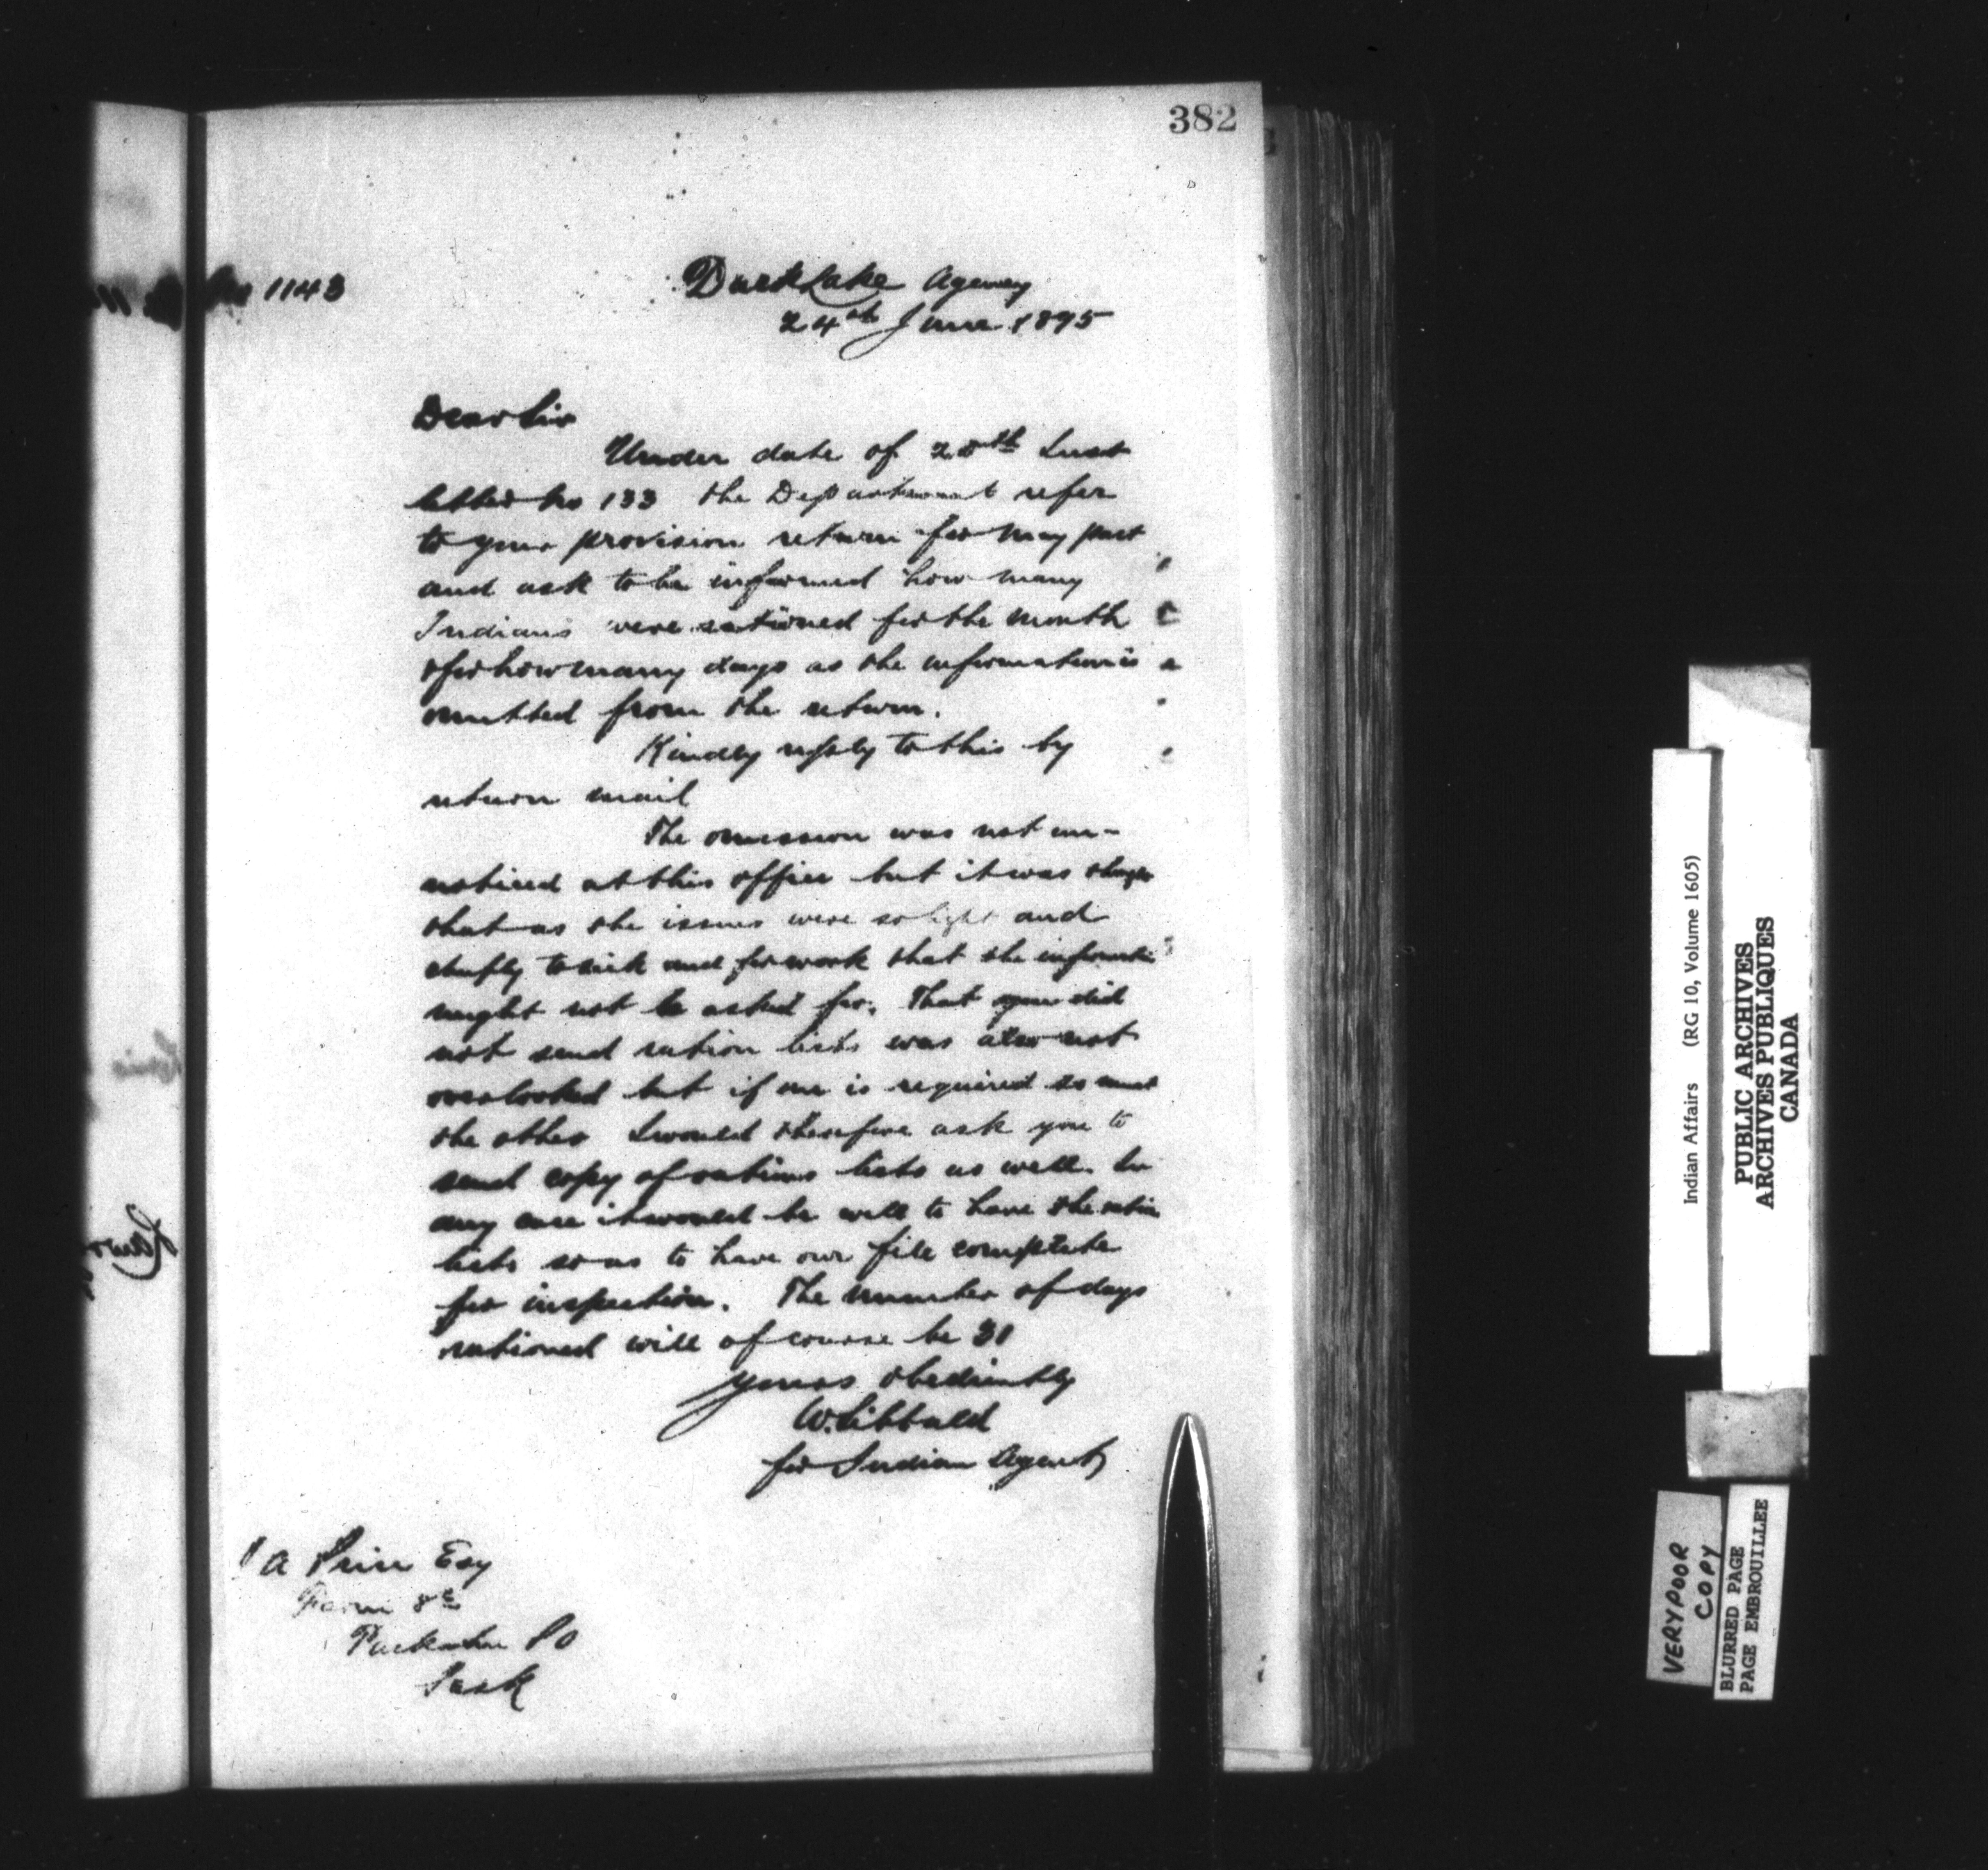 382
No 1143
Duck Lake Agency
24th June 1895
Dear Sir
Under date of 20th Inst
letter No 133 the Department refer
to your provision return for May past
and ask to be informed how many
Indians were rationed for the month
& for how many days as the information is
omitted from the return.
Kindly reply to this by
return mail
The omission was not un-
noticed at this office but it was
that as the issues were so light and
chiefly to sick and for work that the informati
might not be asked for. That you did
not send ration lists was also not
overlooked but if one is required so must
the other I would therefore ask you to
send copy of rations lists as well. In
any case it would be well to have the ration
lists so as to have our file complete
for inspection. The number of days
rationed will of course be 31
yours obediently
W. Sibbald
for Indian Agent
A Esq
Farm
P O
Sask
Indian Affairs (RG 10, Volume 1605)
PUBLIC ARCHIVES
ARCHIVES PUBLIQUES
CANADA
VERY POOR
COPY
BLURRED PAGE
PAGE EMBROUILLEE